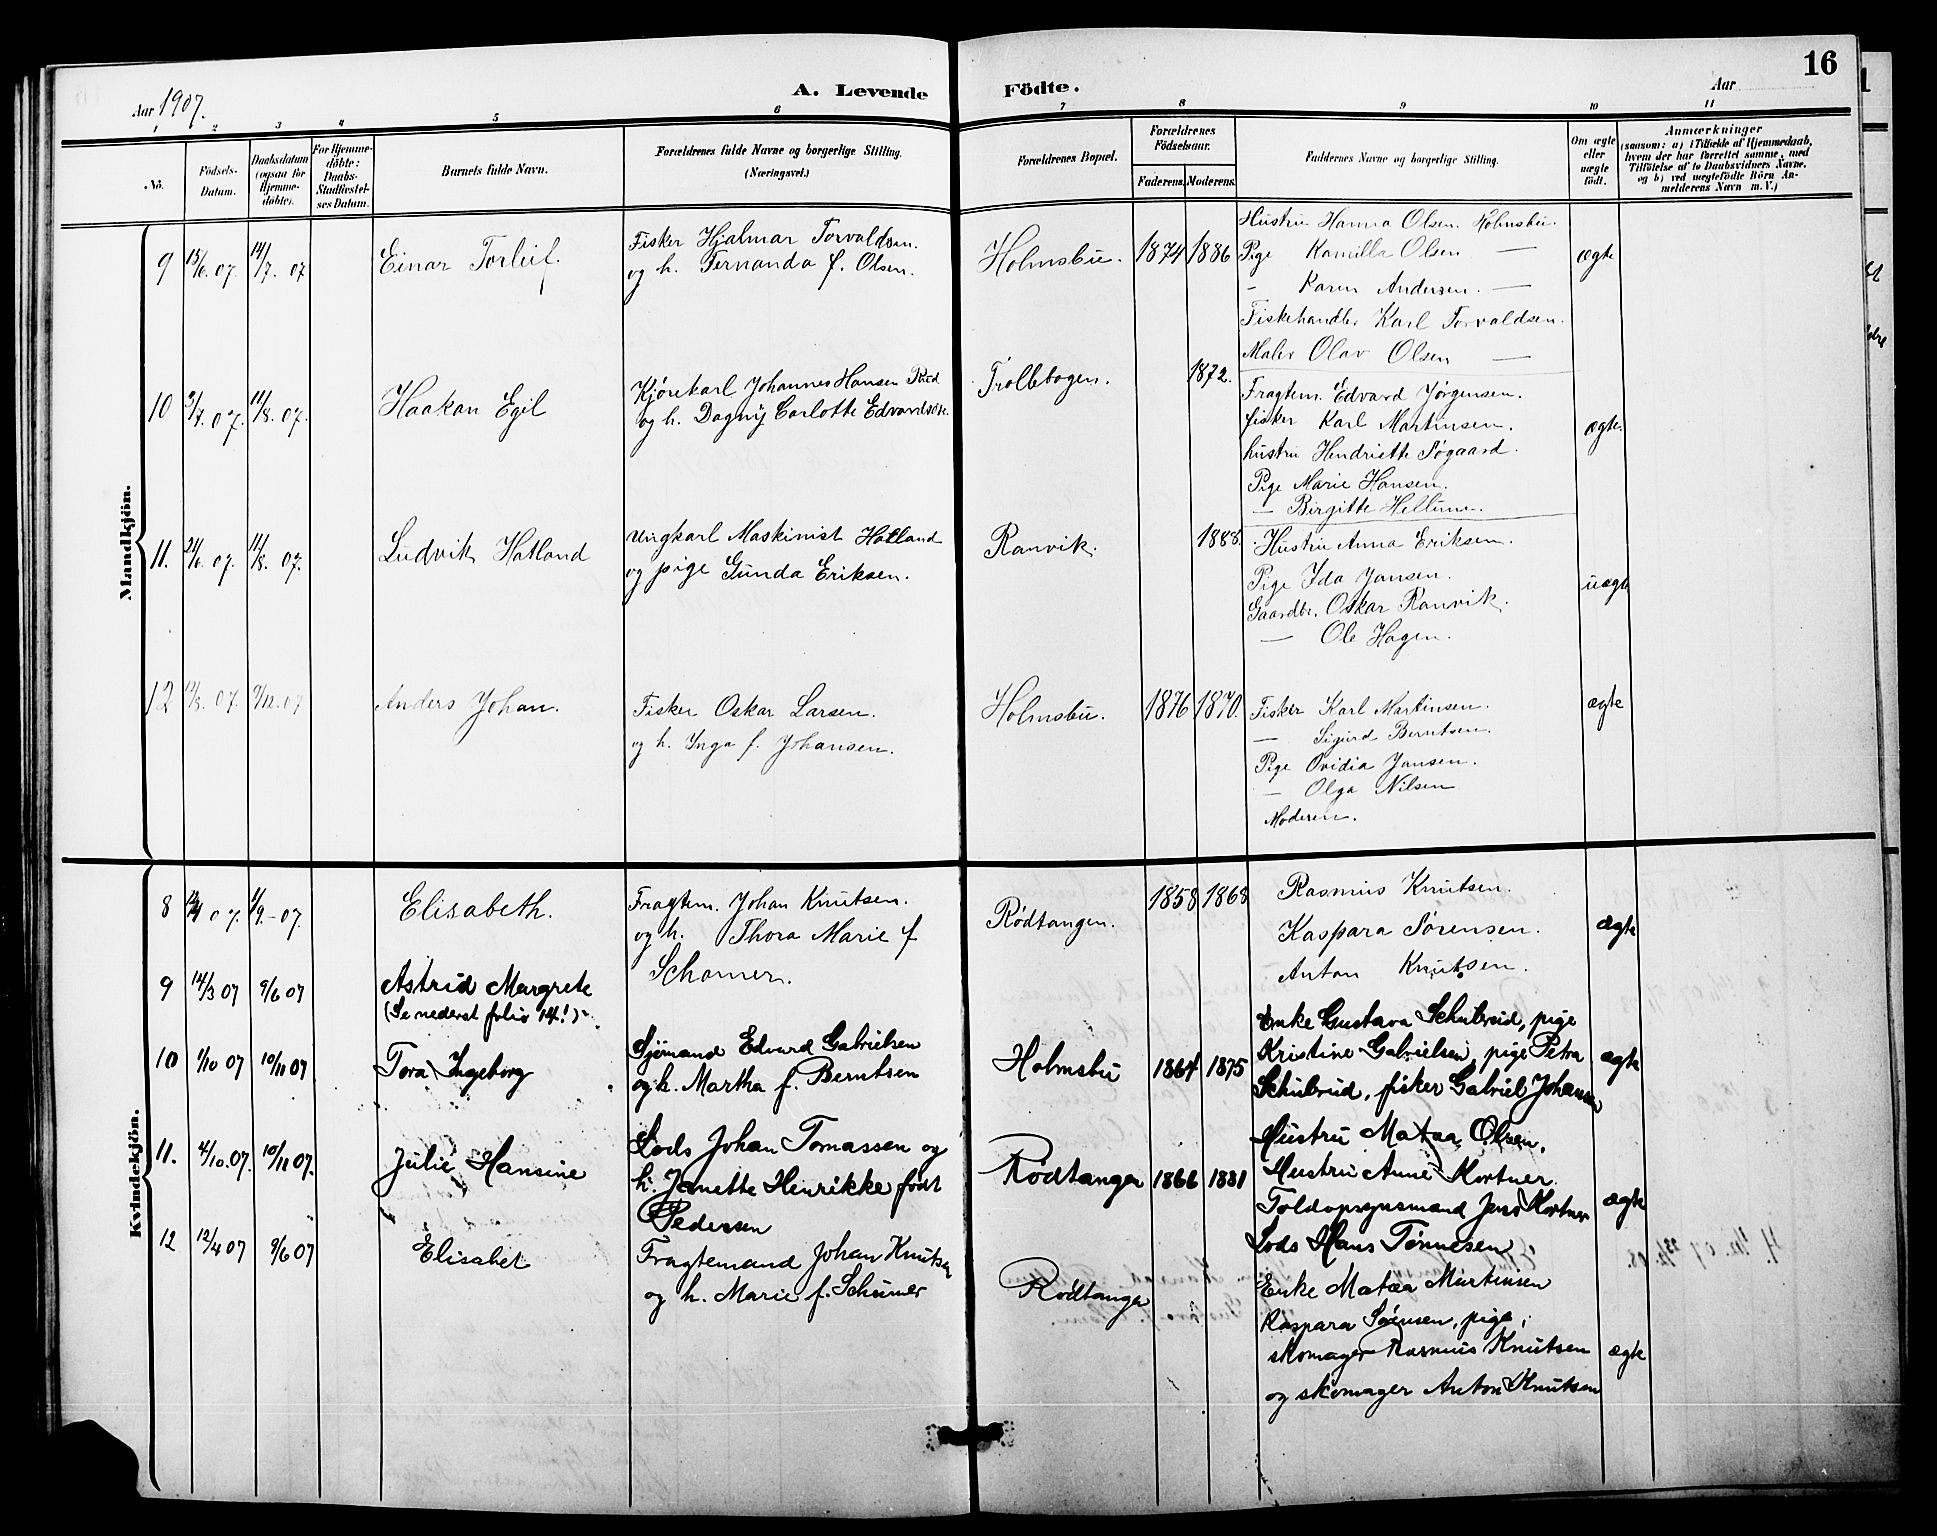 16
Aar 1907.
A. Levende Födte.
Aar
1 2 3 4 5 6 7 8 9 10 11
No.
Födsels-
Datum.
Daabsdatum
(ogsaa for
Hjemme-
döbte).
For Hjemme-
döbte:
Daabs-
Stadfæstel-
ses Datum.
Barnets fulde Navn.
Forældrenes fulde Navne og borgerlige Stilling.
(Næringsvei.)
Forældrenes Bopæl.
Forældrenes
Födselsaar.
Faderens. Moderens.
Faddernes Navne og borgerlige Stilling.
Om ægte
eller
uægte
födt.
Anmærkninger
(saasom: a) i Tilfælde af Hjemmedaab,
hvem der har forrettet samme, med
Tilföielse af to Daabsvidners Navne,
og b) ved uægtefödte Börn An-
melderens Navn m. V.)
Mandkjön.
9 15/6. 07. 14/7. 07 Einar Torleif.
Fisker Hjalmar Torvaldsen.
og h. Fernanda f. Olsen.
Holmsbu. 1874 1886
Hustru Hanna Olsen. Holmsbu.
Pige Kamilla Olsen —
- Karen Andersen. —
Fiskehandler Karl Torvaldsen.
Maler Olav Olsen —
ægte
10 3/7. 07. 11/8. 07. Haakan Egil
Kjørekarl Johannes Hansen Rud
og h. Dagny Carlotte Edvardsen.
Trollebogen. 1872.
Fragtem. Edvard Jørgensen.
fisker Karl Martinsen.
hustru Henriette Søgaard.
Pige Marie Hansen.
— Birgitte Hellum.
ægte.
11. 21/6. 07. 11/8. 07. Ludvik Hatland
Ungkarl Maskinist Hatland
og pige Gunda Eriksen.
Ranvik. 1888.
Hustru Anna Eriksen.
Pige Ida Jansen.
Gaardbr. Oskar Ranvik.
— Ole Hagen.
uægte
12 /8. 07. /12. 07 Anders Johan.
Fisker Oskar Larsen.
og h. Inga f. Johansen.
Holmsbu. 1876 1870.
Fisker Karl Martinsen.
— Sigurd Berntsen.
Pige Ovidia Jansen.
— Olga Nilsen
Moderen.
ægte
Kvindekjön.
8 12/4 07. /9.-07. Elisabeth.
Fragtem. Johan Knutsen.
og h. Thora Marie f
Schamer.
Rødtangen. 1858 1868
Rasmus Knutsen.
Kaspara Sørensen.
Anton Knutsen.
ægte
9 14/3 07 9/6 07 Astrid Margrete
(Se nederst folio 14!)
10 1/10 07 10/11 07 Tora Ingeborg
Sjømand Edvard Gabrielsen
og h. Martha f. Berntsen
Holmsbu 1864 1875
Enke Gustava Schubrud, pige
Kristine Gabrielsen, pige Petra
Schubrud, fisker Gabriel Johansen
ægte
11. 4/10. 07. 10/11 07. Julie Hansine
Lods Johan Tomassen og
h. Janette Henrikke født
Pedersen
Rødtangen 1866 1881
Hustru Matæa Olsen,
Hustru Anne Hortner
Toldopsynsmand Jens Hortner
Lods Hans Tønnesen
ægte
12 12/4 07 9/6 07 Elisabet
Fragtemand Johan Knutsen
og h. Marie f. Schumer
Rødtangen
Enke Matæa Martinsen
Kaspara Sørensen, pige,
skomager Rasmus Knutsen
og skomager Anton Knutsen
ægte